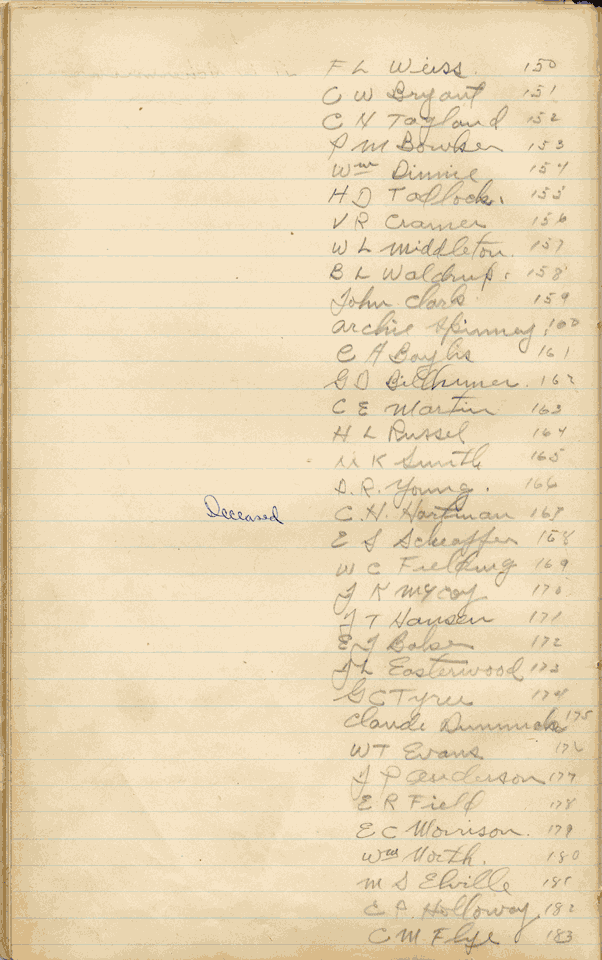 F L Weiss 150
C W Bryant 151
C H Tagland 152
P M Bowker 153
Wm Dinnie 154
H D Tadlock. 155
V R Cramer 156
W L Middleton. 157
B L Waldrup. 158
John Clark 159
Archie Spinney. 160
C A Baylis 161
G D 162
C E Martin 163
H L Russel 164
K Smith 165
D. R. Young. 166
Deceased C. H. Hartman 167
E S Scheaffer 168
W C Fielding 169
J K McCoy 170
J T Hansen 171
E J Baker 172
J L Easterwood 173
G C Tyree 174
Claude Dimmick 175
W T Evans 176
J P Anderson 177
E R Field 178
E C Morrison. 179
Wm North. 180
M S Elville 181
C P. Holloway 182
C M Flye 183